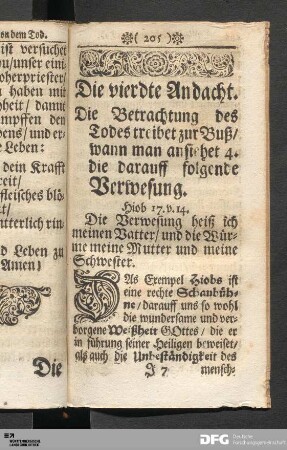 on dem Tod.
ist versuchet
u/unser eini-
oherpriester/
n haben mit
hheit/ damit
mpffen des
bens/ und er-
e Leben:
dein Krafft
reit/
fleisches blö-
t/
tterlich rin-
d Leben zu
Amen)
Die
( 205 )
Die vierdte Andacht.
Die Betrachtung des
Todes treibet zur Buß/
wann man ansiehet 4.
die darauff folgende
Verwesung.
Hiob 17. v. 14.
Die Verwesung heiß ich
meinen Vatter/ und die Wür-
me meine Mutter und meine
Schwester.
DAs Exempel Hiobs ist
eine rechte Schaubüh-
ne/ darauff uns so wohl
die wundersame und ver-
borgene Weißheit GOttes/ die er
in führung seiner Heiligen beweiset/
als auch die Unbeständigkeit des
J 7 mensche
DFG Deutsche
Forschungsgemeinschaft